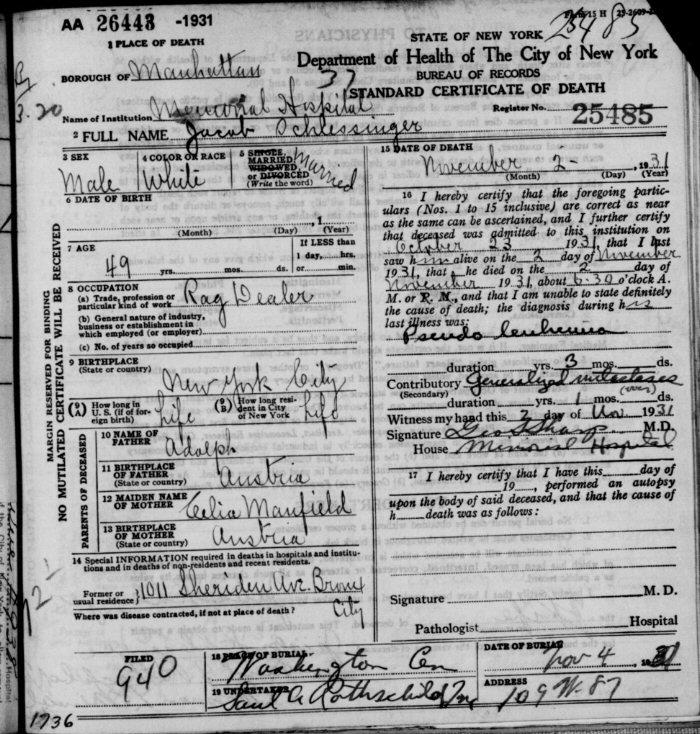 AA 26443 -1931
Form 15 H
25485
1 PLACE OF DEATH
STATE OF NEW YORK
Department of Health of The City of New York
BUREAU OF RECORDS
STANDARD CERTIFICATE OF DEATH
BOROUGH OF Manhattan
37
Name of Institution Memorial Hospital
Register No. 25485
2 FULL NAME Jacob Schlessinger
3 SEX
Male
4 COLOR OR RACE
White
5 SINGLE
MARRIED
WIDOWED
or DIVORCED
(Write the word)
Married
6 DATE OF BIRTH
, 1
(Month) (Day) (Year)
7 AGE
49 yrs. mos. ds.
If LESS than
1 day, hrs.
or min.
8 OCCUPATION
(a) Trade, profession or
particular kind of work Rag Dealer
(b) General nature of industry,
business or establishment in
which employed (or employer)
(c) No. of years so occupied
9 BIRTHPLACE
(State or country) New York City
(A) How long in
U. S. (if of for-
eign birth) Life
(B) How long resi-
dent in City
of New York Life
PARENTS OF DECEASED
10 NAME OF
FATHER Adolph
11 BIRTHPLACE
OF FATHER
(State or country) Austria
12 MAIDEN NAME
OF MOTHER Celia Manfield
13 BIRTHPLACE
OF MOTHER
(State or country) Austria
14 Special INFORMATION required in deaths in hospitals and institu-
tions and in deaths of non-residents and recent residents.
Former or
usual residence 1011 Sheriden Ave. Bronx
City
Where was disease contracted, if not at place of death?
15 DATE OF DEATH
November 2- , 1931
(Month) (Day) (Year)
16 I hereby certify that the foregoing partic-
ulars (Nos. 1 to 15 inclusive) are correct as near
as the same can be ascertained, and I further certify
that deceased was admitted to this institution on
October 23 1931, that I last
saw him alive on the 2 day of November
1931, that he died on the 2 day of
November 1931, about 6:30 o'clock A.
M. or P. M., and that I am unable to state definitely
the cause of death; the diagnosis during his
last illness was:
Pseudo leukemia
duration yrs. 3 mos. ds.
Contributory Generalized metastases
(Secondary) (over)
duration yrs. 1 mos. ds.
Witness my hand this 2 day of Nov 1931
Signature Geo S Sharp M.D.
House Memorial Hospital
17 I hereby certify that I have this day of
19 , performed an autopsy
upon the body of said deceased, and that the cause of
h death was as follows:
Signature M. D.
Pathologist Hospital
FILED
940
18 PLACE OF BURIAL
Washington Cem
DATE OF BURIAL
Nov-4 , 1931
19 UNDERTAKER
Saul A Rothschild Inc
ADDRESS
109 W-87
MARGIN RESERVED FOR BINDING
NO MUTILATED CERTIFICATE WILL BE RECEIVED
1736